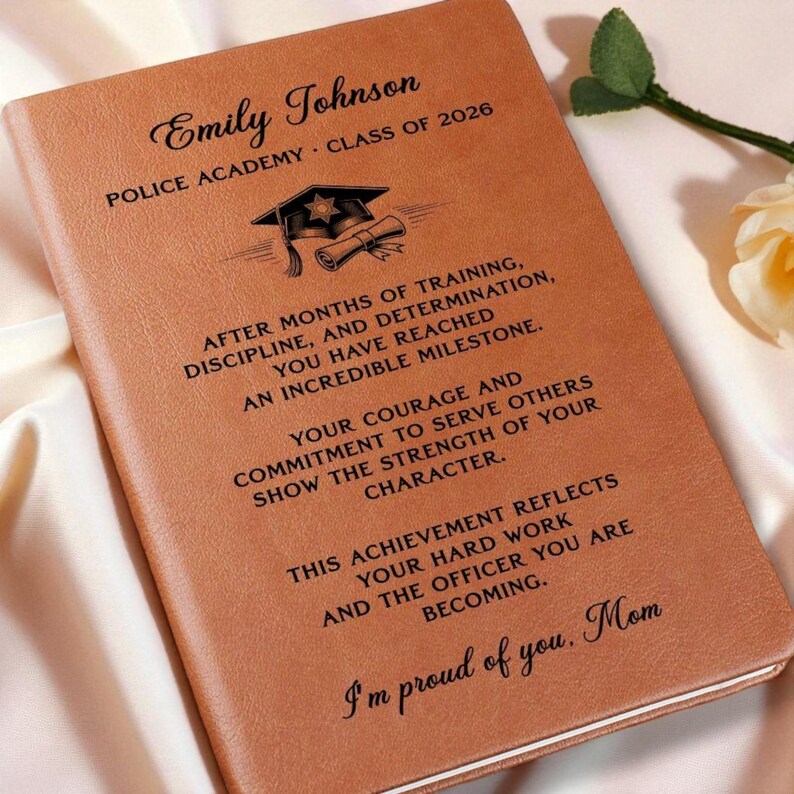 Emily Johnson
POLICE ACADEMY · CLASS OF 2026
AFTER MONTHS OF TRAINING,
DISCIPLINE, AND DETERMINATION,
YOU HAVE REACHED
AN INCREDIBLE MILESTONE.
YOUR COURAGE AND
COMMITMENT TO SERVE OTHERS
SHOW THE STRENGTH OF YOUR
CHARACTER.
THIS ACHIEVEMENT REFLECTS
YOUR HARD WORK
AND THE OFFICER YOU ARE
BECOMING.
I'm proud of you, Mom